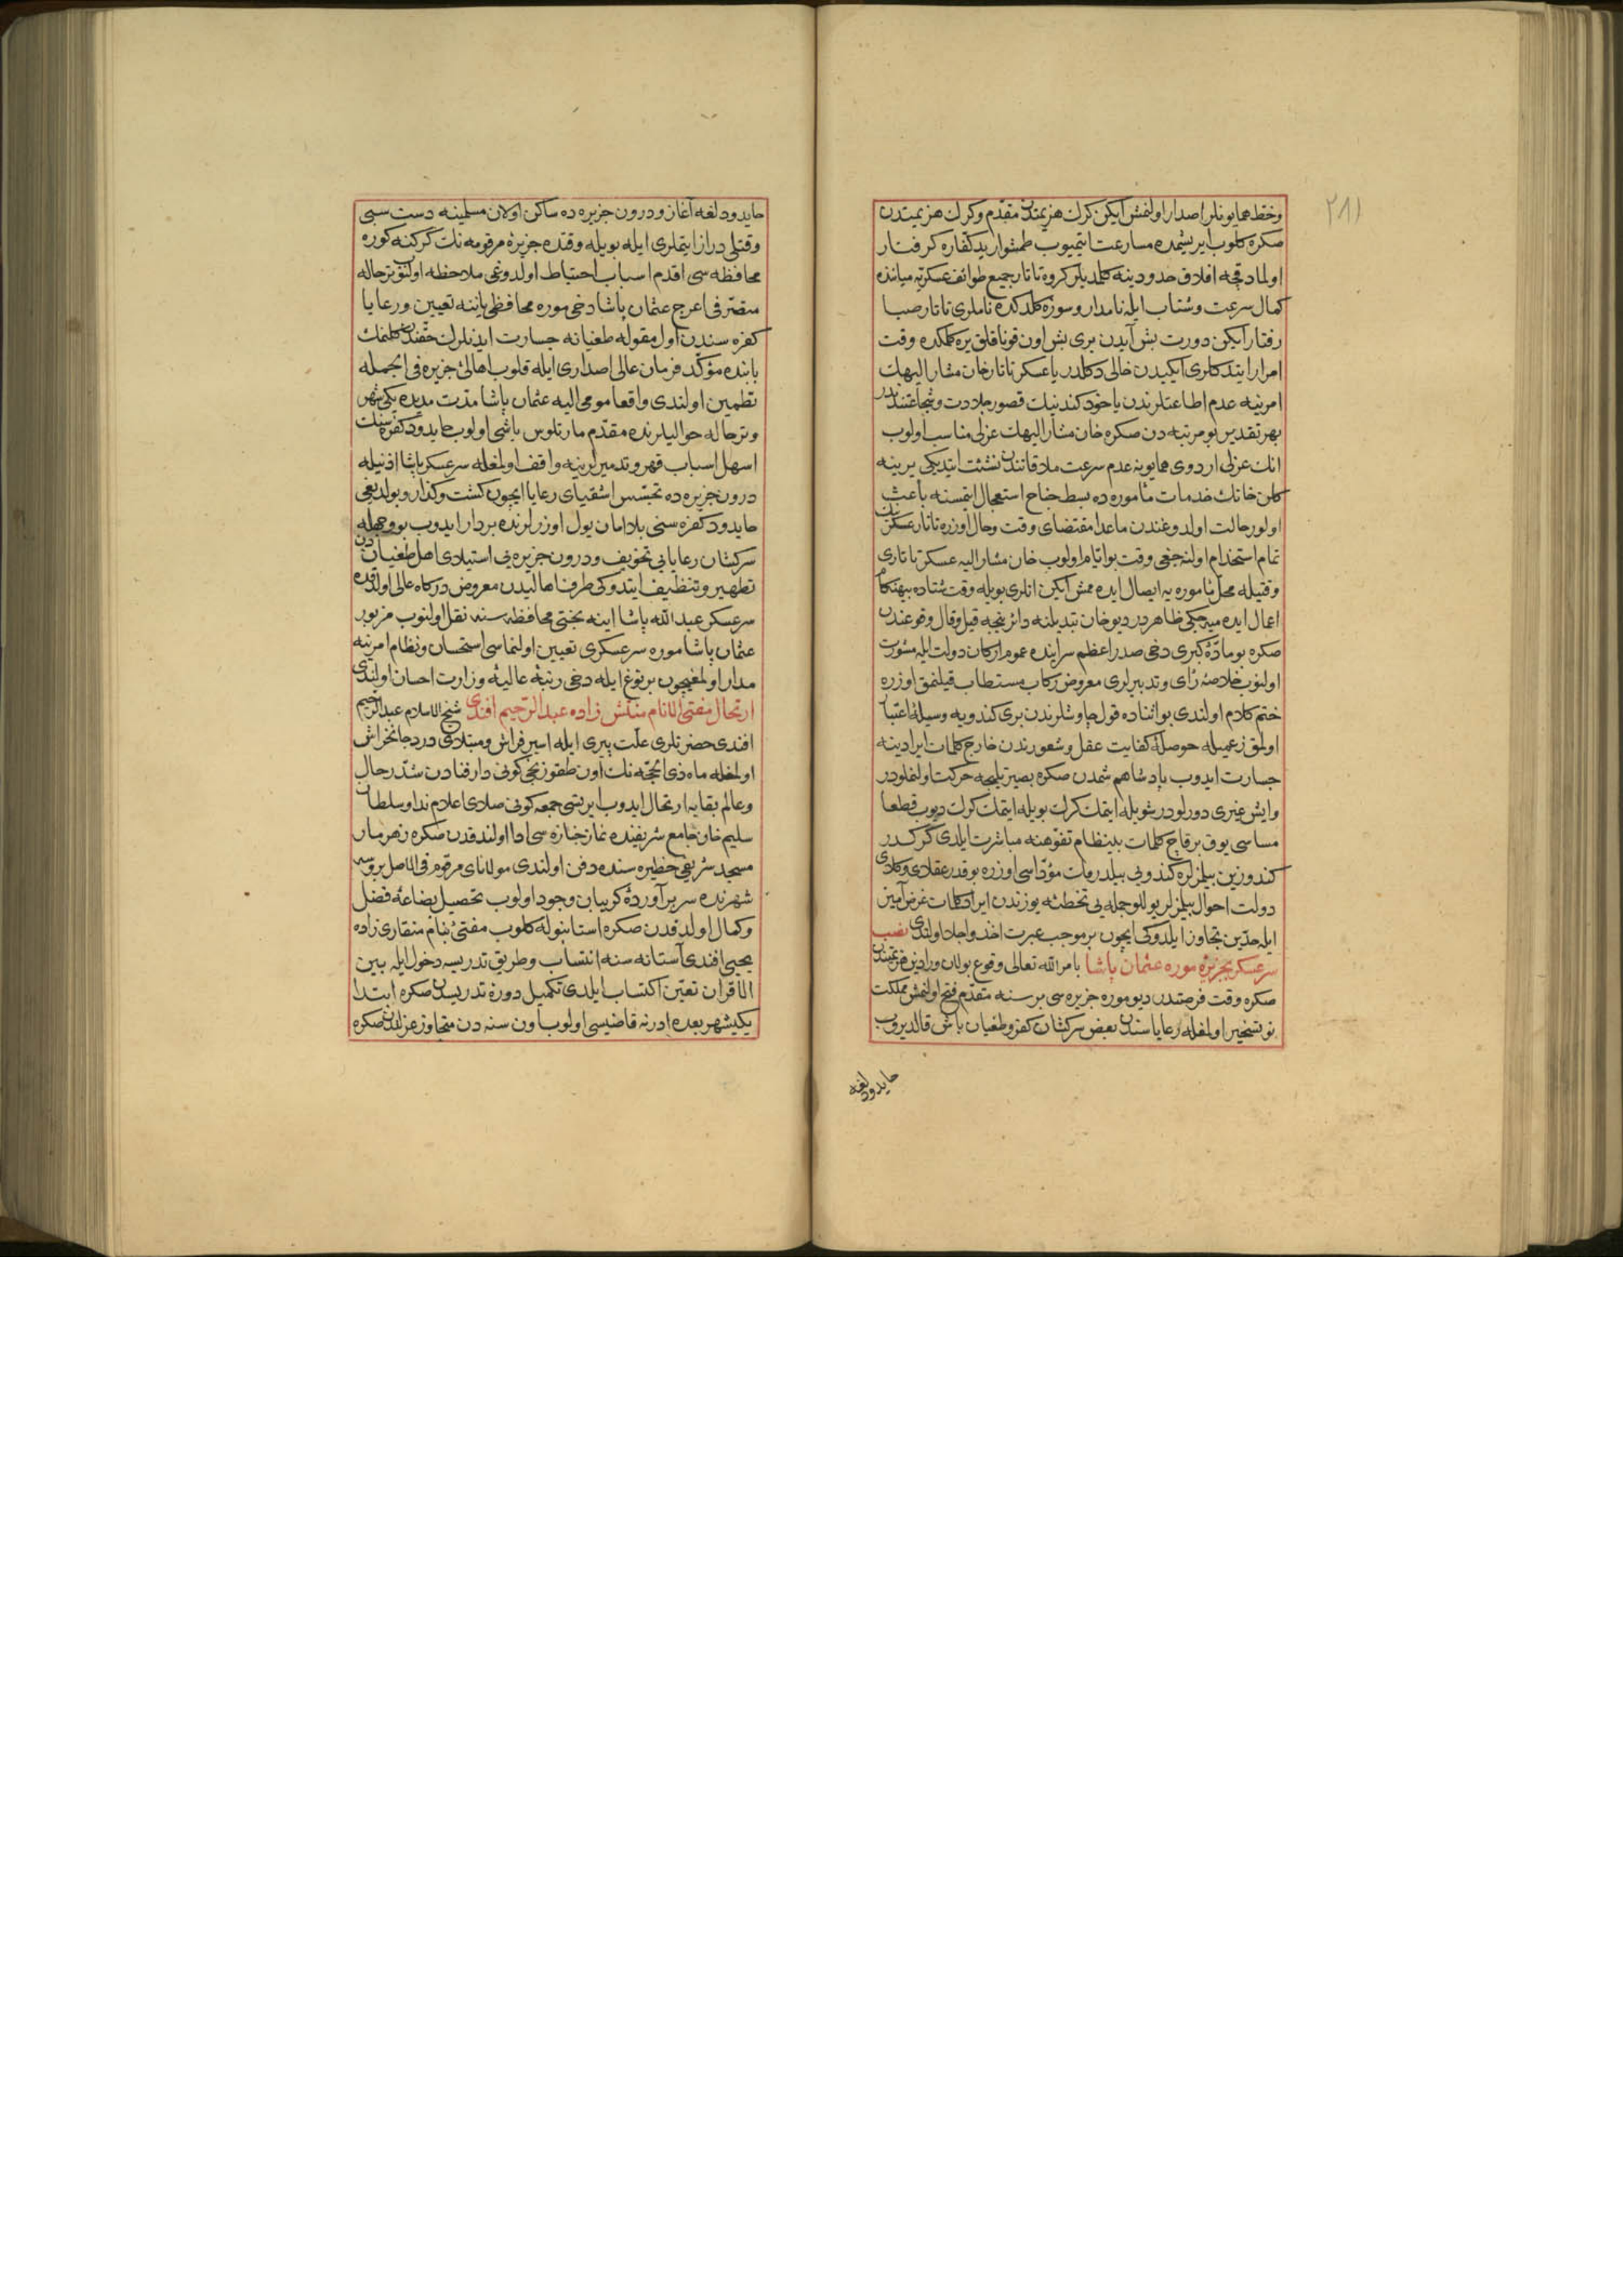 ٢٨١
وخط همایونلر اصدار اولنمش ایکن کرك هزیمتدن مقدم وکرك هزیمتدن
صکره کلوب ایریشمده مسارعت ایتمیوب طمشوار ید کفاره کرفتار
اولمادقجه افلاق حدودینه کلمدیلر کروه تاتار جمیع طوائف عسکریه میاننده
کمال سرعت وشتاب ایله نامدار وسوزه کلدکده ناملری تاتار صبا
رفتار ایکن دورت بش آیدن بری بش اون قوناقلق یره کلمکده وقت
امرار ایتدکلری ایکیدن خالی دکلدر یا عسکر تاتار خان مشار الیهك
امرینه عدم اطاعتلرندن یاخود کندینك قصور جلادت وشجاعتندندر
بهر تقدیر بو مرتبه دن صکره خان مشار الیهك عزلی مناسب اولوب
انك عزلی اردوی همایونه عدم سرعت ملاقاتندن نشئت ایتدیکی یرینه
کلن خانك خدمات مأموره ده بسط جناح استعجال ایتمسنه باعث
اولور حالت اولدوغندن ماعدا مقتضای وقت وحال اوزره تاتار عسکرینك
تمام استخدام اولنه جغی وقت بو ایام اولوب خان مشار الیه عسکر تاتاری
وقتیله محل مأموره یه ایصال ایده ممش ایکن انلری بویله وقت شتاده بیهنکام
اعمال ایده میه جکی ظاهردر دیو خان تبدیلنه دائر نیجه قیل وقال وقوعندن
صکره بو ماده کبری دخی صدر اعظم سراینده عموم ارکان دولت ایله مشورت
اولنوب خلاصه رای وتدبیرلری معروض رکاب مستطاب قیلنمق اوزره
ختم کلام اولندی بو اثناده قول چاوشلرندن بری کندویه وسیله اعتبار
اولمق زعمیله حوصله کفایت عقل وشعورندن خارج کلمات ایرادینه
جسارت ایدوب پادشاهم شمدن صکره بصیرتلیجه حرکت اولنملودر
وایش غیری دورلودر شویله ایتمك کرك بویله ایتمك کرك دیوب قطعا
مساسی یوق برقاچ کلمات بدینظام تفوهنه مباشرت ایلدی کرکدر
کندوزین بیلمزلره کندوبی بیلدرمك مؤداسی اوزره بو قدر عقلادی وکلادی
دولت احوال بیلمزلر یوللو جمله یی تخطئه یوزندن ایراد کلمات غرض آمیز
ایله حدین تجاوز ایلدوکی ایچون بر موجب عبرت اخذ واجلا اولندی نصب
سرعسکر بجزیره موره عثمان پاشا بامر الله تعالی وقوع بولان ورادین هزیمتندن
صکره وقت فرصتدر دیو موره جزیره سی بر سنه مقدم فتح اولنمش مملکت
نو تسخیر اولمغله رعایاسندن بعض سرکشان کفر وطغیان باش قالدیروب
حایدودلغه
حایدودلغه آغاز ودرون جزیره ده ساکن اولان مسلمینه دست سبی
وقتلی دراز ایتملری ایله بویله وقتده جزیره مرقومه نك کرکنه کوره
محافظه سی اقدم اسباب احتیاط اولدوغی ملاحظه اولنوب ترحاله
متصرفی اعرج عثمان پاشا دخی موره محافظه یاننه تعیین ورعایا
کفره سندن اول مقوله طغیانه جسارت ایدنلرك حقندن کلنمك
بابنده مؤکد فرمان عالی اصداری ایله قلوب اهالئ جزیره فی الجمله
تطمین اولندی واقعا مومی الیه عثمان پاشا مدت مدیده یکی شهر
وترحاله حوالیلرنده مقدم مارتلوس باشی اولوب حایدود کفره سنك
اسهل اسباب قهر وتدمیرلرینه واقف اولمغله سرعسکر پاشا اذنیله
درون جزیره ده تجسس اشقیای رعایا ایچون کشت وکذار وبولدیغی
حایدود کفره سنی بلا امان یول اوزرلرنده بردار ایدوب بو وجهله
سرکشان رعایایی تخویف ودرون جزیره یی استیلادی اهل طغیاندن
تطهیر وتنظیف ایتدوکی طرف اهالیدن معروض درکاه عالی اولدقده
سرعسکر عبدالله پاشا اینه بختی محافظه سنه نقل اولنوب مزبور
عثمان پاشا موره سرعسکری تعیین اولنماسی استحسان ونظام امرینه
مدار اولمغیچون بر توغ ایله دخی رتبه عالیه وزارت احسان اولندی
ارتحال مفتی الانام منتش زاده عبد الرحیم افندی شیخ الاسلام عبد الرحیم
افندی حضرتلری علت پیری ایله اسیر فراش ومبتلای درد جانخراش
اولمغله ماه ذی الحجه نك اون طقوزنجی کونی دار فنادن شد رحال
وعالم بقایه ارتحال ایدوب ایرتسی جمعه کونی صلای اعلام ندا وسلطان
سلیم خان جامع شریفنده نماز جنازه سی ادا اولندقدن صکره زهرمار
مسجد شریفی حظیره سنده دفن اولندی مولانای مرقوم فی الاصل بروسه
شهرنده سر برآورده کریبان وجود اولوب تحصیل بضاعه فضل
وکمال اولدقدن صکره استانبوله کلوب مفتئ بنام منقاری زاده
یحیی افندی آستانه سنه انتساب وطریق تدریسه دخول ایله بین
الاقران تعین اکتساب ایلدی تکمیل دوره تدریسدن صکره ابتدا
یکیشهر بعده ادرنه قاضیسی اولوب اون سنه دن متجاوز عزلدن صکره